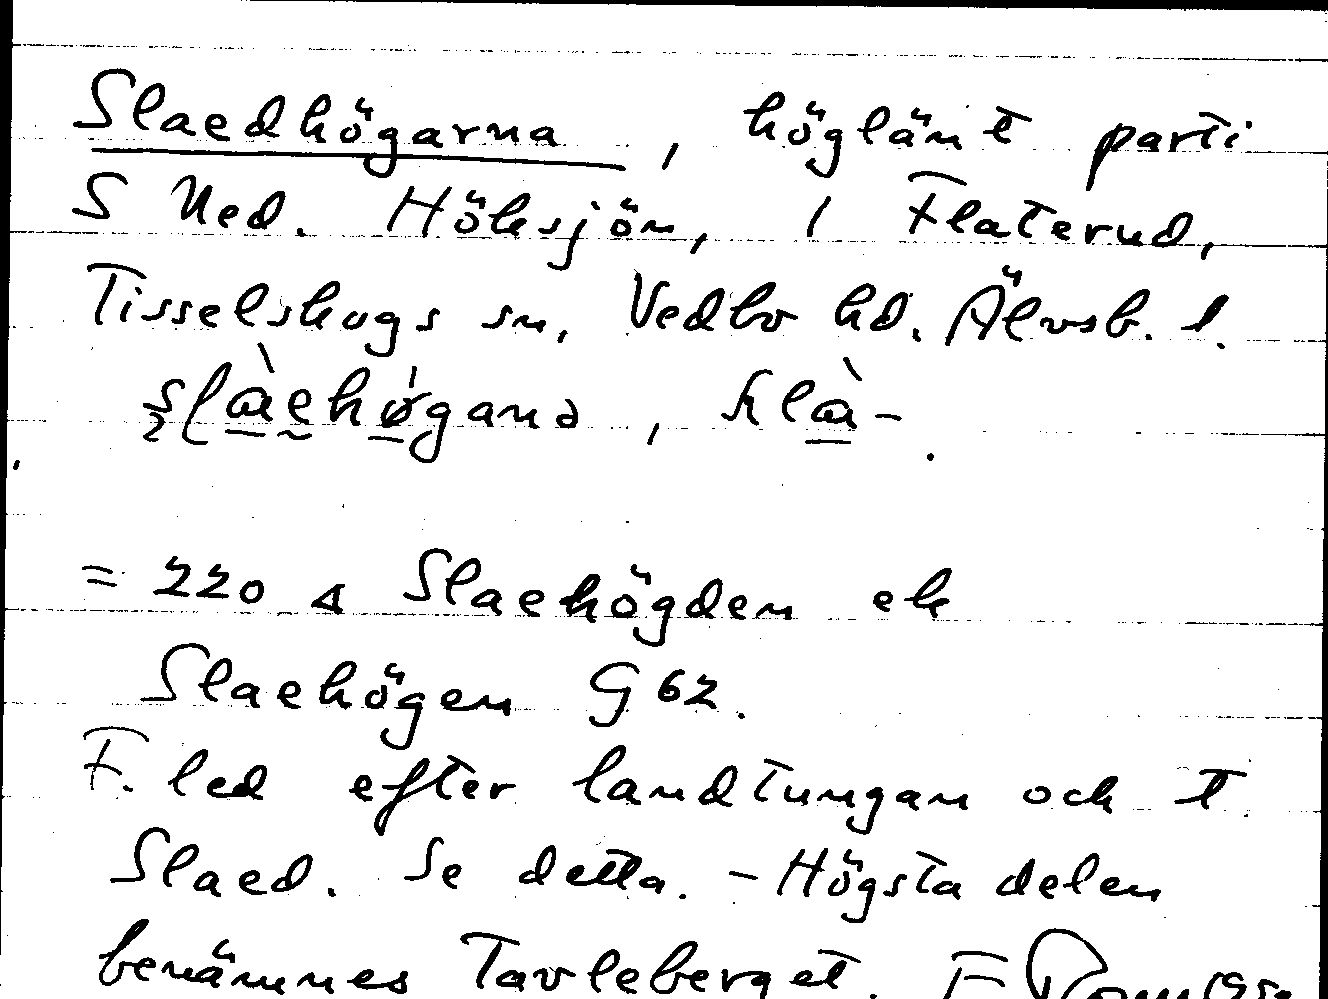 Slaedhögarna, höglänt parti
S Ned. Höksjön, i Flaterud,
Tisselskogs sn, Vedbo hd. Älvsb. l.
= 220 Δ Slaehögden ek
Slaehögen G 62.
F. led efter landtungan och t
Slaed. Se detta. - Högsta delen
benämnes Tavleberget.